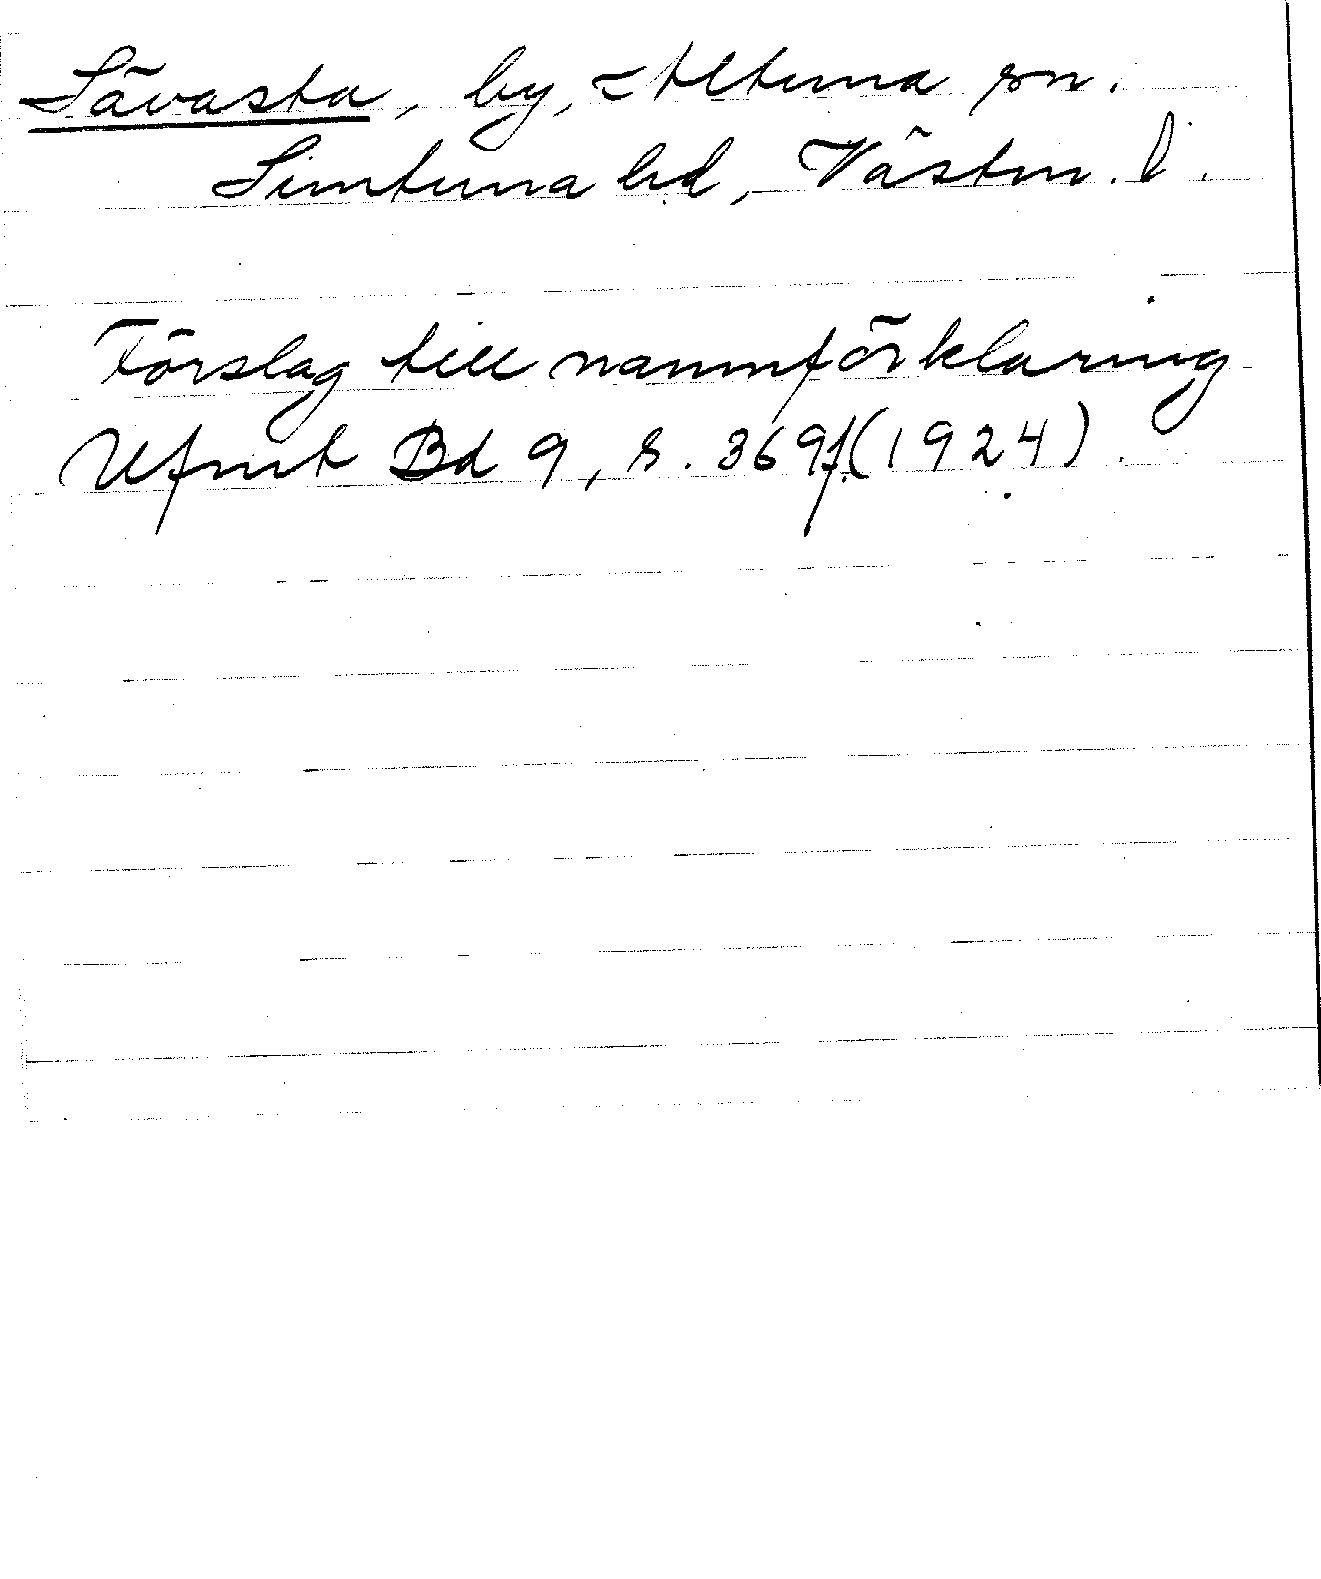 Sävasta, by, Altuna sn.
Simtuna hd, Västm. l.
Förslag till namnförklaring
Ufmt Bd 9, s. 369f.(1924).